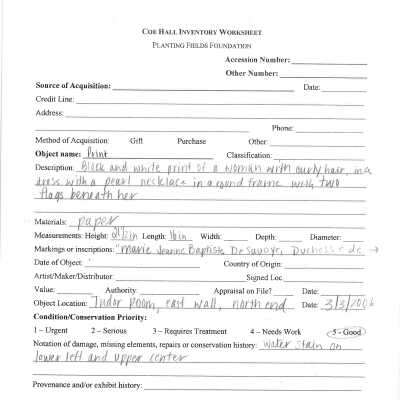 COE HALL INVENTORY WORKSHEET
PLANTING FIELDS FOUNDATION
Accession Number:
Other Number:
Source of Acquisition: Date:
Credit Line:
Address:
Phone:
Method of Acquisition: Gift Purchase Other:
Object name: Print Classification:
Description: Black and white print of a woman with curly hair, in a
dress with a pearl necklace in a round frame with two
flags beneath her
Materials: paper
Measurements: Height: Length: 16 in Width: Depth: Diameter:
Markings or inscriptions: "Marie Jeanne Baptiste De Savoye, Duchesse de →
Date of Object: Country of Origin:
Artist/Maker/Distributor: Signed Loc
Value: Authority: Appraisal on File? Date:
Object Location: Tudor Room, east wall, north end Date: 3/3/2006
Condition/Conservation Priority:
1 – Urgent 2 – Serious 3 – Requires Treatment 4 – Needs Work 5 - Good
Notation of damage, missing elements, repairs or conservation history: water stain on
lower left and upper center
Provenance and/or exhibit history: